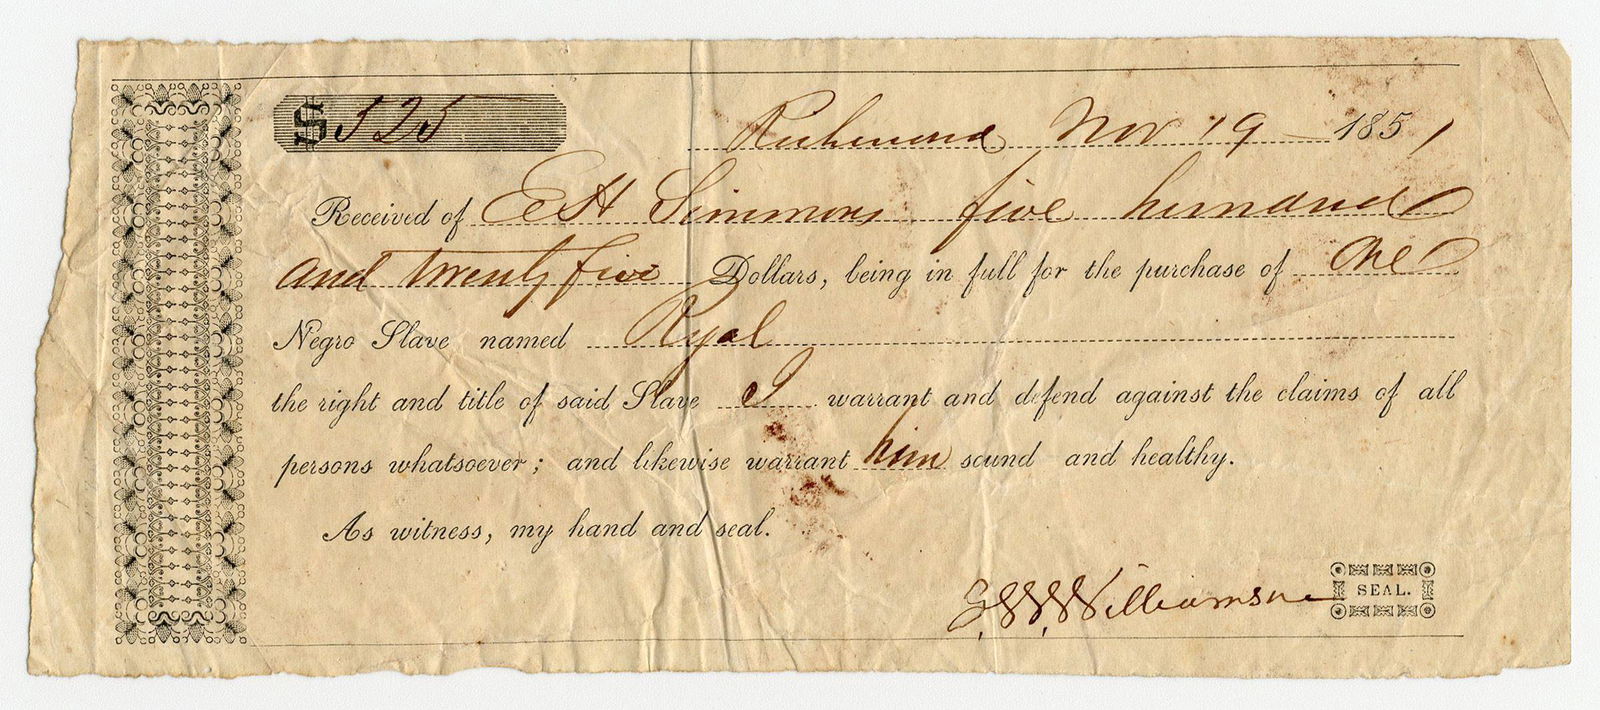 $525
Richmond Nov 19 1851
Received of E H Simmons five hundred
and twenty five Dollars, being in full for the purchase of One
Negro Slave named Ryal
the right and title of said Slave I warrant and defend against the claims of all
persons whatsoever; and likewise warrant him sound and healthy.
As witness, my hand and seal.
Williamson SEAL.